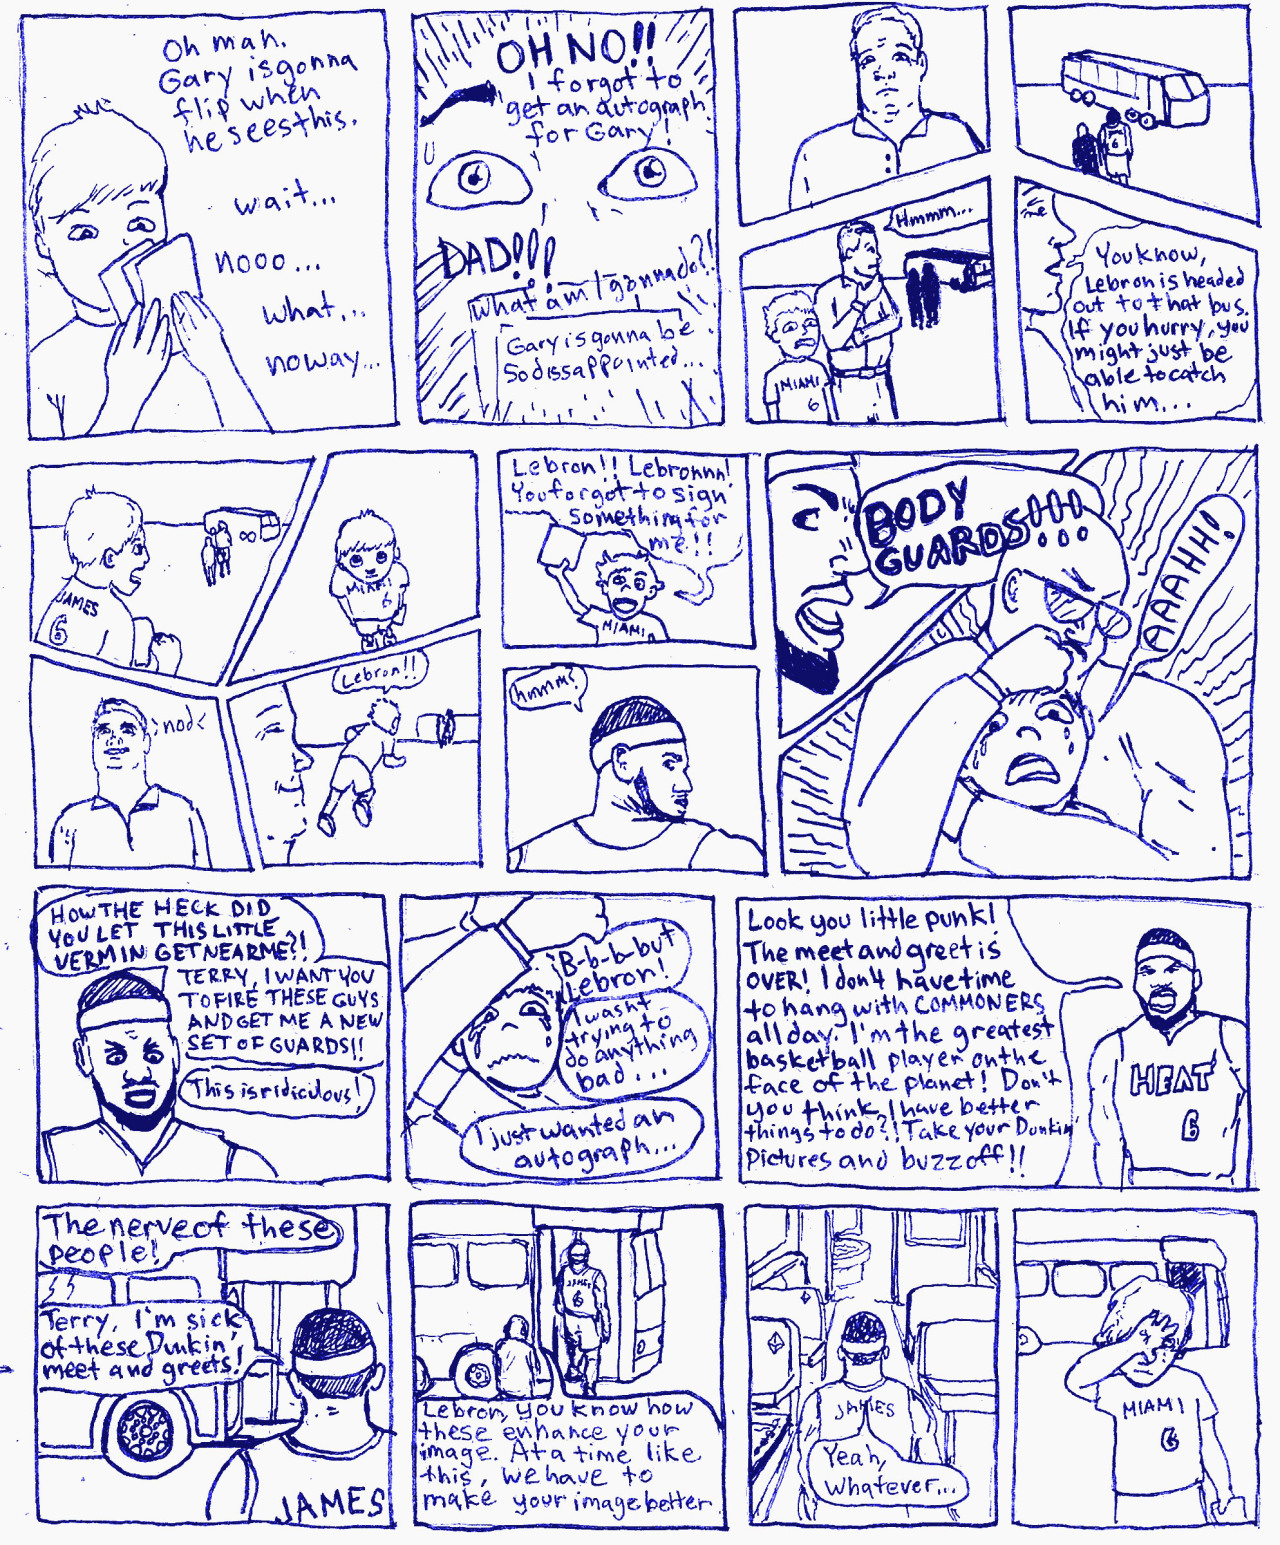 Oh mah.
Gary is gonna
flip when
he sees this.
wait...
nooo...
what...
noway...
OH NO!!
I forgot to
get an autograph
for Gary!
DAD!!!
What am I gonna do?!
Gary is gonna be
So dissappointed...
Hmmm...
MIAMI
6
6
You know,
Lebron is headed
out to that bus.
If you hurry, you
might just be
able to catch
him...
JAMES
6
MIAMI
6
nod
Lebron!!
Lebron!! Lebronnn!
You forgot to sign
something for
me!!
MIAMI
hmmm?
BODY
GUARDS!!!
AAAHH!
HOW THE HECK DID
YOU LET THIS LITTLE
VERMIN GET NEAR ME?!
TERRY, I WANT YOU
TO FIRE THESE GUYS
AND GET ME A NEW
SET OF GUARDS!!
This is ridiculous!
B-b-b-but
Lebron!
I wasnt
trying to
do anything
bad...
I just wanted an
autograph...
Look you little punk!
The meet and greet is
OVER! I don't have time
to hang with COMMONERS
all day. I'm the greatest
basketball player on the
face of the planet! Don't
you think I have better
things to do?! Take your Dunkin'
Pictures and buzz off!!
HEAT
6
The nerve of these
people!
Terry, I'm sick
of these Dunkin'
meet and greets!
JAMES
JAMES
6
Lebron, you know how
these enhance your
image. At a time like
this, we have to
make your image better
JAMES
Yeah,
Whatever...
MIAMI
6